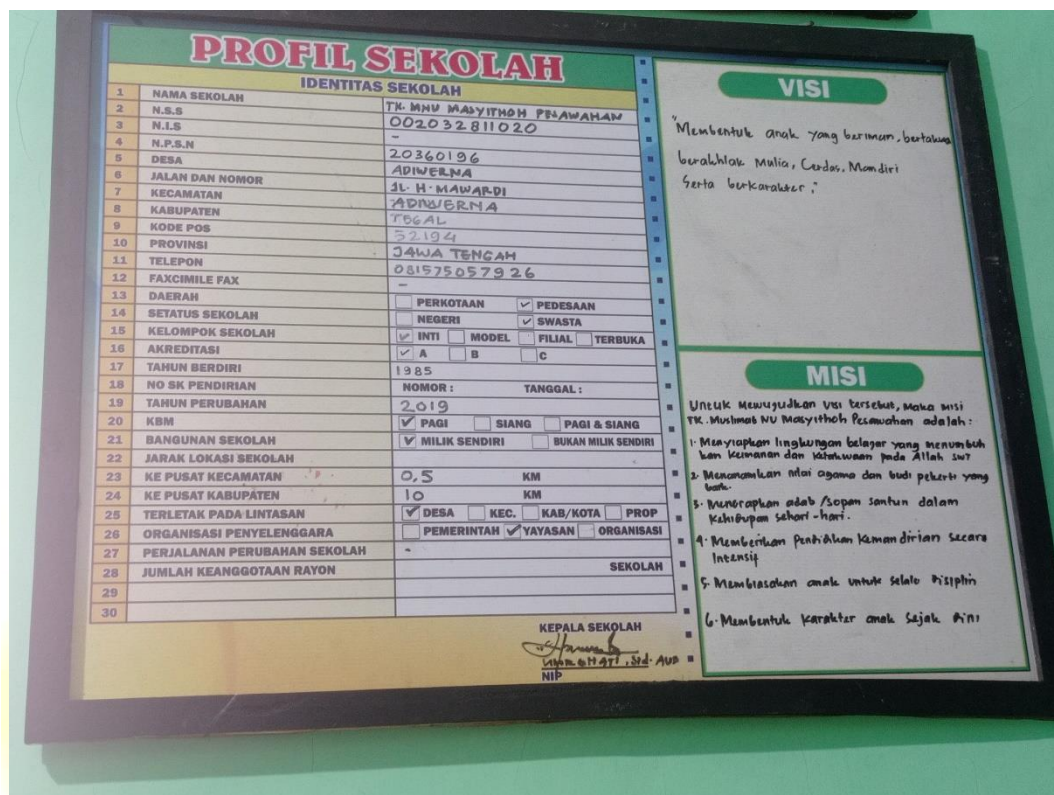 PROFIL SEKOLAH
IDENTITAS SEKOLAH
1 NAMA SEKOLAH TK. MNU MASYITHOH PESAWAHAN
2 N.S.S 002032811020
3 N.I.S -
4 N.P.S.N 20360196
5 DESA ADIWERNA
6 JALAN DAN NOMOR JL. H. MAWARDI
7 KECAMATAN ADIWERNA
8 KABUPATEN TEGAL
9 KODE POS 52194
10 PROVINSI JAWA TENGAH
11 TELEPON 081575057926
12 FAXCIMILE FAX -
13 DAERAH PERKOTAAN ✓ PEDESAAN
14 SETATUS SEKOLAH NEGERI ✓ SWASTA
15 KELOMPOK SEKOLAH ✓ INTI MODEL FILIAL TERBUKA
16 AKREDITASI ✓ A B C
17 TAHUN BERDIRI 1985
18 NO SK PENDIRIAN NOMOR : TANGGAL :
19 TAHUN PERUBAHAN 2019
20 KBM ✓ PAGI SIANG PAGI & SIANG
21 BANGUNAN SEKOLAH ✓ MILIK SENDIRI BUKAN MILIK SENDIRI
22 JARAK LOKASI SEKOLAH
23 KE PUSAT KECAMATAN 0,5 KM
24 KE PUSAT KABUPATEN 10 KM
25 TERLETAK PADA LINTASAN ✓ DESA KEC. KAB/KOTA PROP
26 ORGANISASI PENYELENGGARA PEMERINTAH ✓ YAYASAN ORGANISASI
27 PERJALANAN PERUBAHAN SEKOLAH -
28 JUMLAH KEANGGOTAAN RAYON SEKOLAH
29
30
KEPALA SEKOLAH
, S.Pd. AUD
NIP
VISI
"Membentuk anak yang beriman, bertakwa
berakhlak Mulia, Cerdas, Mandiri
Serta berkarakter ;"
MISI
Untuk Mewujudkan visi tersebut, Maka misi
TK. Muslimat NU Masyithoh Pesawahan adalah :
1. Menyiapkan lingkungan belajar yang menumbuh
kan Keimanan dan Ketakwaan pada Allah SWT
2. Menanamkan nilai agama dan budi pekerti yang
baik.
3. Menerapkan adab /sopan santun dalam
Kehidupan sehari-hari.
4. Memberikan Pendidikan Kemandirian Secara
Intensif
5. Membiasakan anak untuk selalu Disiplin
6. Membentuk Karakter anak Sejak Dini